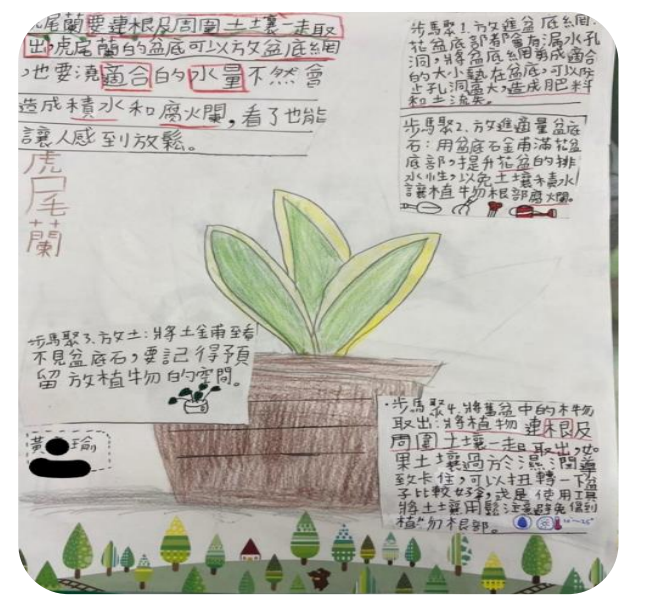 虎尾蘭要連根及周圍土壤一起取
出,虎尾蘭的盆底可以放盆底網
,也要澆適合的水量不然會
造成積水和腐火闌,看了也能
讓人感到放鬆。
虎尾蘭
步馬聚1.放進盆底網.
花盆底部都會有漏水孔
洞,將盆底網剪成適合
的大小墊在盆底,可以防
止孔洞過大,造成肥料
和土流失。
步馬聚2.放進適量盆底
石:用盆底石鋪滿花盆
底部,提升花盆的排
水性,以免土壤積水
讓植物根部腐爛。
步馬聚3.放土:將土鋪至看
不見盆底石,要記得預
留放植物的空間。
黃 瑜
步馬聚4.將舊盆中的植物
取出:將植物連根及
周圍土壤一起取出,如
果土壤過於濕潤導
致卡住,可以扭轉一下盆
子比較好拿,或是使用工具
將土壤用鬆注意避免傷到
植物根部。